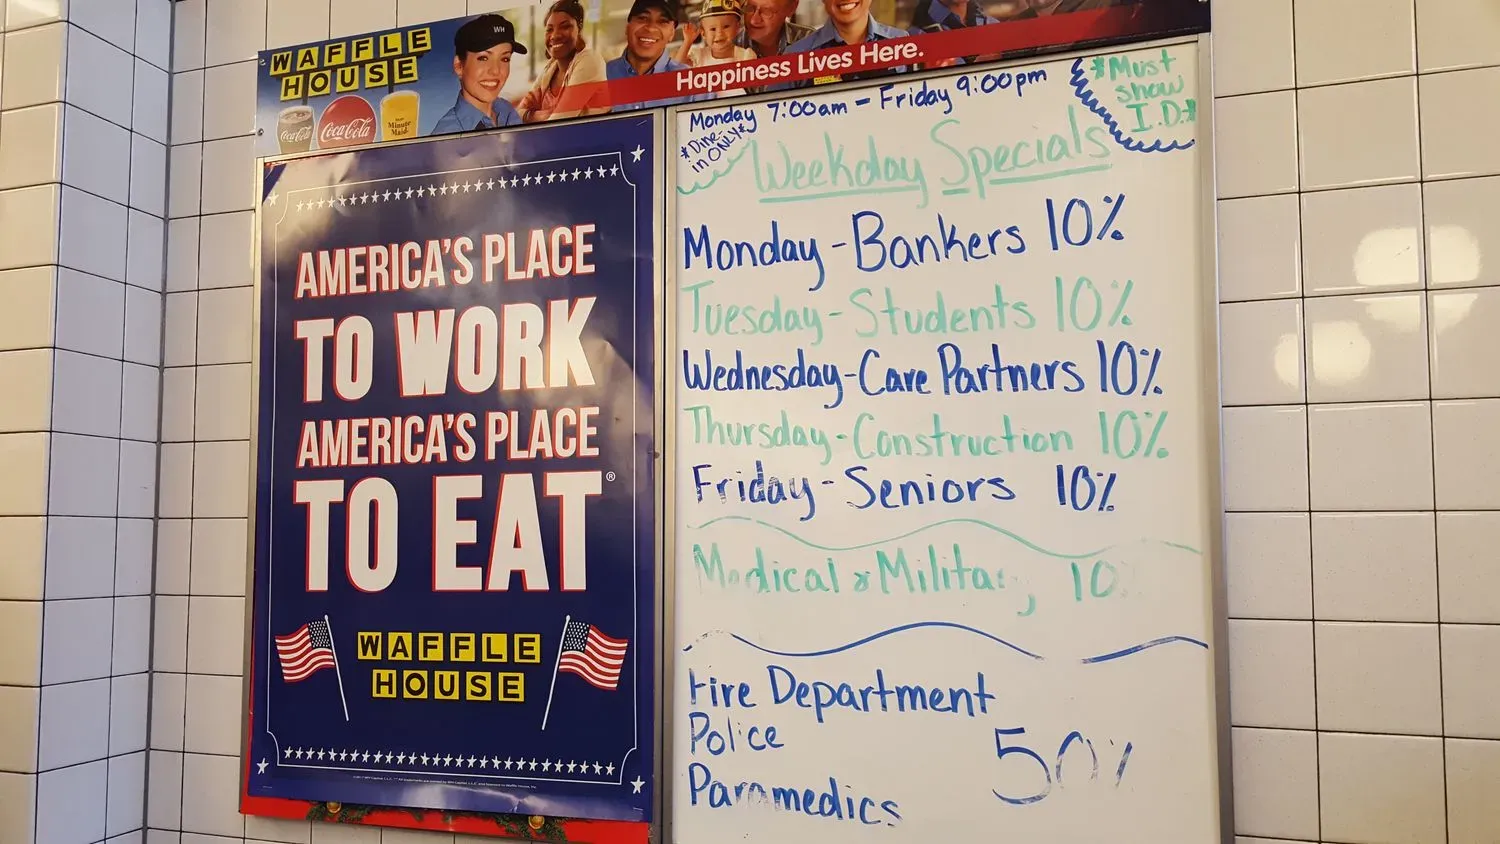 WAFFLE
HOUSE
WH
Coca-Cola
Coca-Cola
Minute
Maid
Happiness Lives Here.
AMERICA'S PLACE
TO WORK
AMERICA'S PLACE
TO EAT®
WAFFLE
HOUSE
Monday 7:00am - Friday 9:00pm
*Dine-
in ONLY*
*Must
show
I.D.*
Weekday Specials
Monday - Bankers 10%
Tuesday - Students 10%
Wednesday - Care Partners 10%
Thursday - Construction 10%
Friday - Seniors 10%
Medical & Military 10
Fire Department
Police
Paramedics
50%